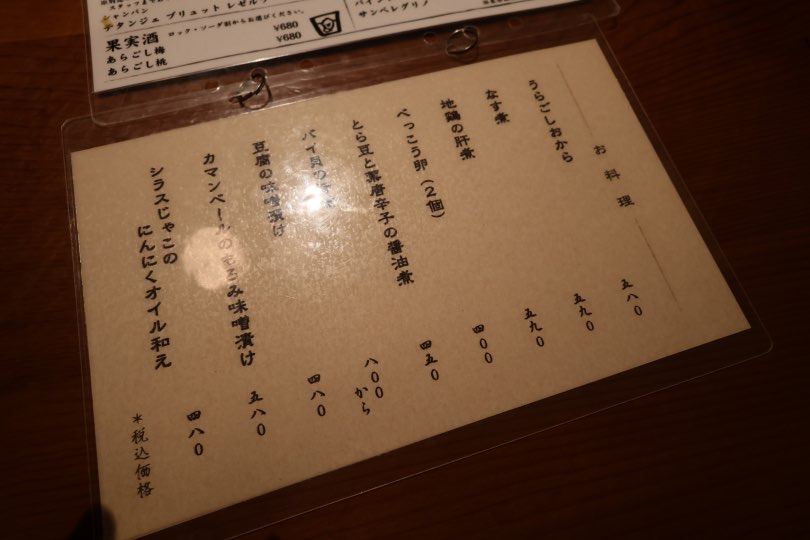 シャンパン
テタンジェ ブリュット レゼルヴ
果実酒 ロック・ソーダ割からお選びください。
あらごし梅 ¥680
あらごし桃 ¥680
サンペレグリノ
お料理
うらごしおから 五八〇
なす煮 五九〇
地鶏の肝煮 五九〇
べっこう卵(2個) 四〇〇
とら豆と葉唐辛子の醤油煮 四五〇
バイ貝の 八〇〇から
豆腐の味噌漬け 四八〇
カマンベールのもろみ味噌漬け 五八〇
シラスじゃこの
にんにくオイル和え 四八〇
*税込価格